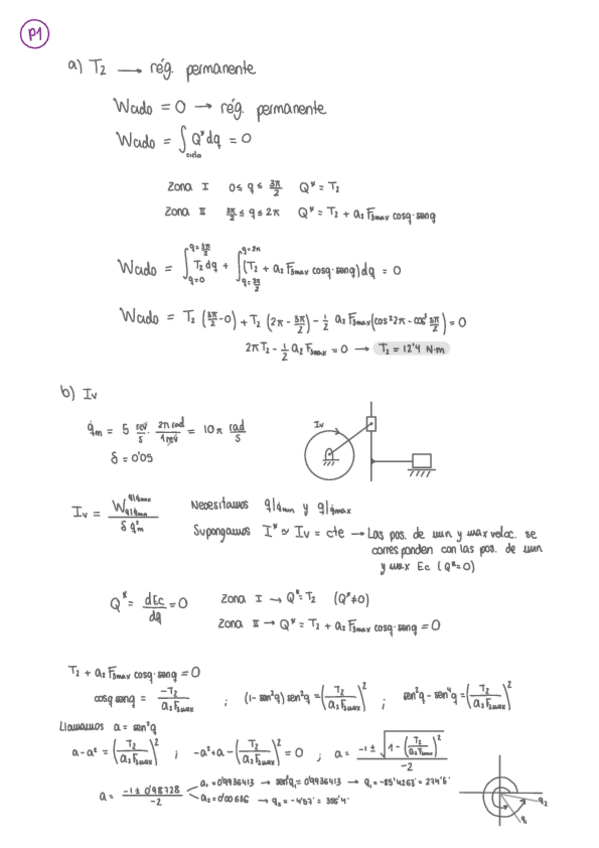 P1
a) T₂ ⟶ rég. permanente
Wciclo = 0 → rég. permanente
Wciclo = ∫ciclo Q*dq = 0
Zona I 0 ≤ q ≤ 3π/2 Q* = T₂
Zona II 3π/2 ≤ q ≤ 2π Q* = T₂ + a₂ F₃max cosq·senq
Wciclo = ∫q=0^q=3π/2 T₂ dq + ∫q=3π/2^q=2π (T₂ + a₂ F₃max cosq·senq) dq = 0
Wciclo = T₂ (3π/2 - 0) + T₂ (2π - 3π/2) - 1/2 a₂ F₃max (cos²2π - cos² 3π/2) = 0
2πT₂ - 1/2 a₂ F₃max = 0 ⟶ T₂ = 12'4 N·m
b) Iv
q̇m = 5 rev/s · 2π rad/1 rev = 10π rad/s
δ = 0'05
Iv
Iv = W q|q̇min q|q̇max / δ q̇²m Necesitamos q|q̇min y q|q̇max
Supongamos I* ≃ Iv = cte ⟶ Las pos. de min y max veloc. se
corresponden con las pos. de min
y max Ec (Q*=0)
Q* = dEc/dq = 0 Zona I → Q* = T₂ (Q*≠0)
Zona II → Q* = T₂ + a₂ F₃max cosq·senq = 0
T₂ + a₂ F₃max cosq·senq = 0
cosq senq = -T₂/a₂F₃max ; (1-sen²q) sen²q = (T₂/a₂F₃max)² ; sen²q - sen⁴q = (T₂/a₂F₃max)²
Llamamos a = sen²q
a - a² = (T₂/a₂F₃max)² ; -a² + a - (T₂/a₂F₃max)² = 0 ; a =
a = -1 ± 0'98728 / -2 a₁ = 0'9936413 → sen²q₁ = 0'9936413 → q₁ = -85'4263° = 274'6°
a₂ = 0'00636 → q₂ = = 356'4°
q₂
q₁